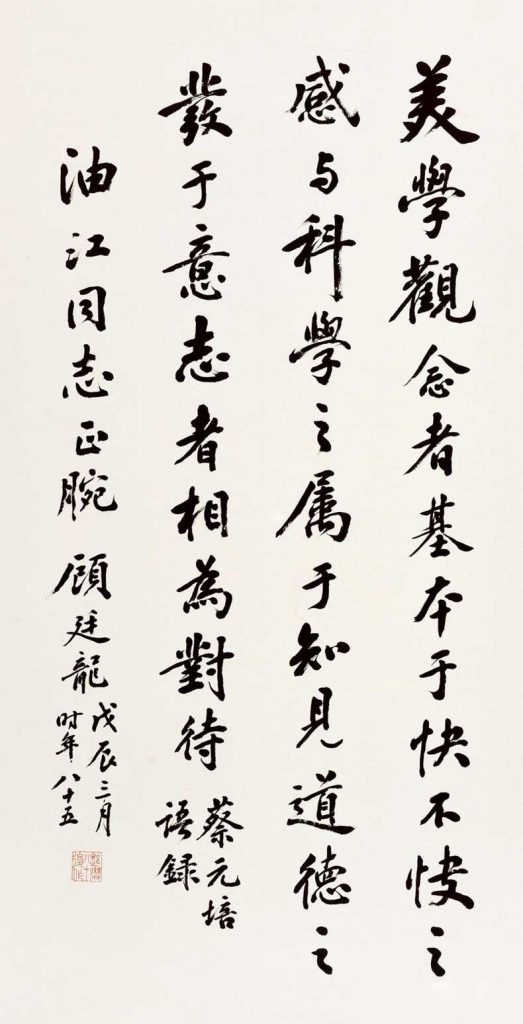 美學觀念者基本于快不快之
感与科學之属于知見道德之
發于意志者相為對待
蔡元培
語録
油江同志正腕 顧廷龍
戊辰三月
时年八十五